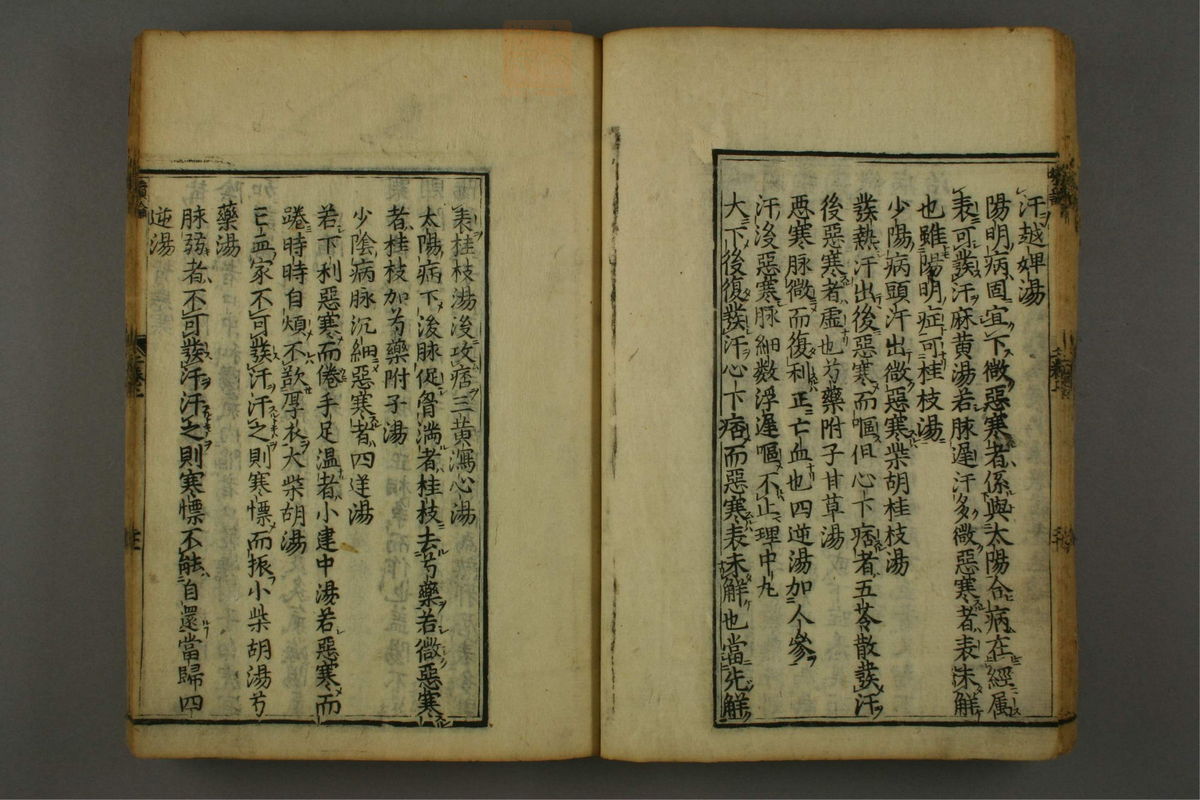 汗越婢湯
陽明病固宜下微惡寒者係與太陽合病在經属
表可發汗麻黄湯若脉遲汗多微惡寒者表未觧
也雖陽明症可桂枝湯
少陽病頭汗出微惡寒柴胡桂枝湯
發熱汗出後惡寒而嘔但心下痞者五苓散發汗
後惡寒者虚也芍藥附子甘草湯
惡寒脉微而復利正亡血也四逆湯加人參
汗後惡寒脉細数浮遲嘔不止理中丸
大下後復發汗心下痞而惡寒表未觧也當先觧
表桂枝湯後攻痞三黄瀉心湯
太陽病下後脉促胷満者桂枝去芍藥若微惡寒
者桂枝加芍藥附子湯
少陰病脉沉細惡寒者四逆湯
若下利惡寒而倦手足温者小建中湯若惡寒而
踡時時自煩不欲厚衣大柴胡湯
亡血家不可發汗汗之則寒慄而振小柴胡湯芍
藥湯
脉弱者不可發汗汗之則寒慄不能自還當歸四
逆湯